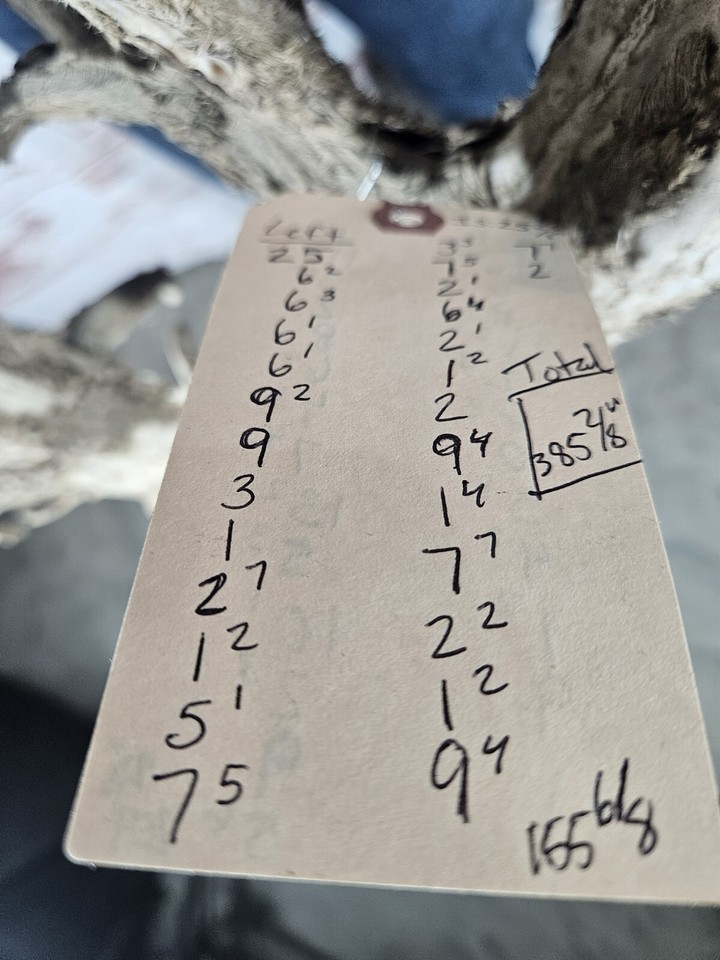 Left
2 5
6 2
6 3
6 1
6 1
9 2
9
3
1
2 7
1 2
5 1
7 5
3 5
1 5
2 1
6 4
2 1
1 2
2
9 4
1 4
7 7
2 2
1 2
9 4
1
2
Total
385 2/8"
155 6/8